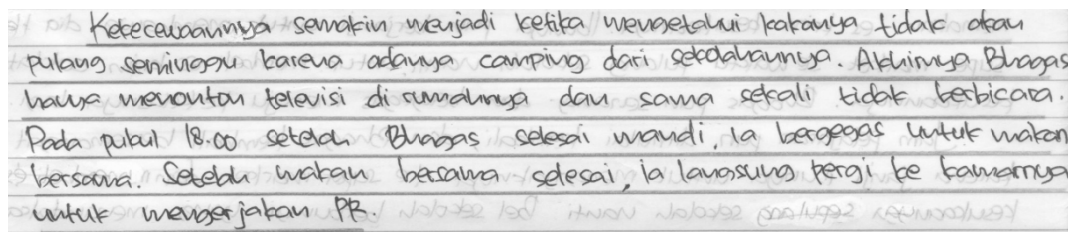 Kekecewaannya semakin menjadi ketika mengetahui kakanya tidak akan
pulang seminggu karena adanya camping dari sekolahannya. Akhirnya Bhagas
hanya menonton televisi di rumahnya dan sama sekali tidak berbicara.
Pada pukul 18.00 setelah Bhagas selesai mandi, ia bergegas untuk makan
bersama. Setelah makan bersama selesai, ia langsung pergi ke kamarnya
untuk mengerjakan PR.